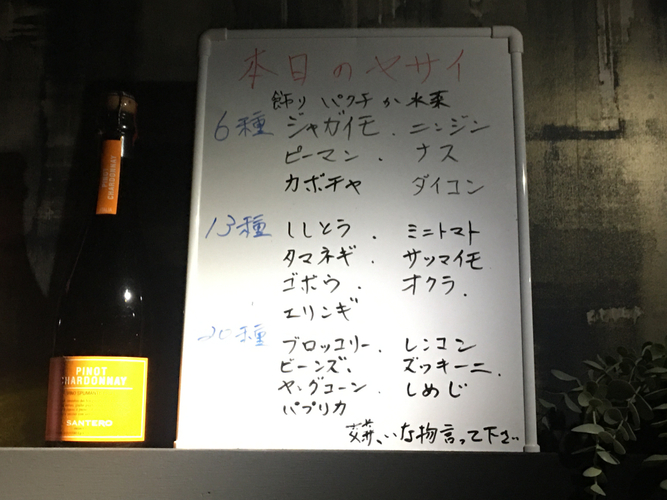 本日のヤサイ
飾り パクチか水菜
6種 ジャガイモ. ニンジン
ピーマン. ナス
カボチャ ダイコン
13種 ししとう. ミニトマト
タマネギ. サツマイモ
ゴボウ. オクラ.
エリンギ
20種 ブロッコリー. レンコン
ビーンズ. ズッキーニ.
ヤングコーン. しめじ
パプリカ
な物言って下さい
PINOT CHARDONNAY
PINOT
CHARDONNAY
SANTERO